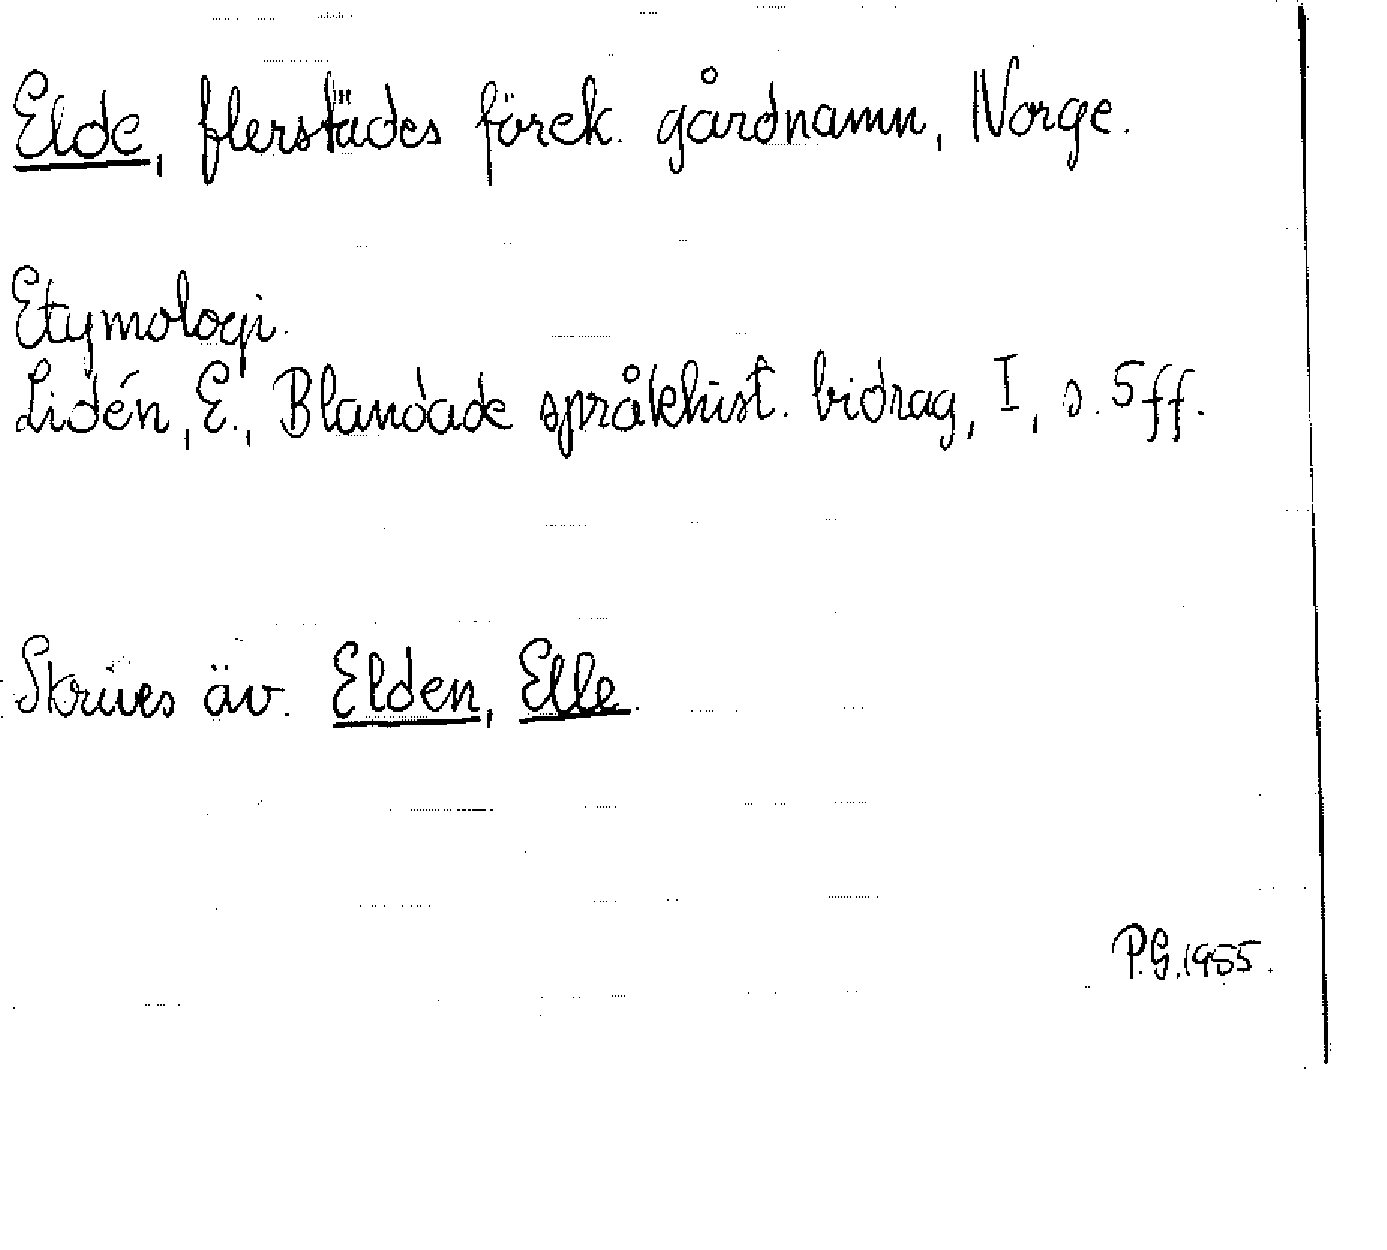 Elde, flerstädes förek. gårdnamn, Norge.
Etymologi.
Lidén, E., Blandade språkhist. bidrag, I, s. 5 ff.
Skrives äv. Elden, Elle.
P.G. 1955.